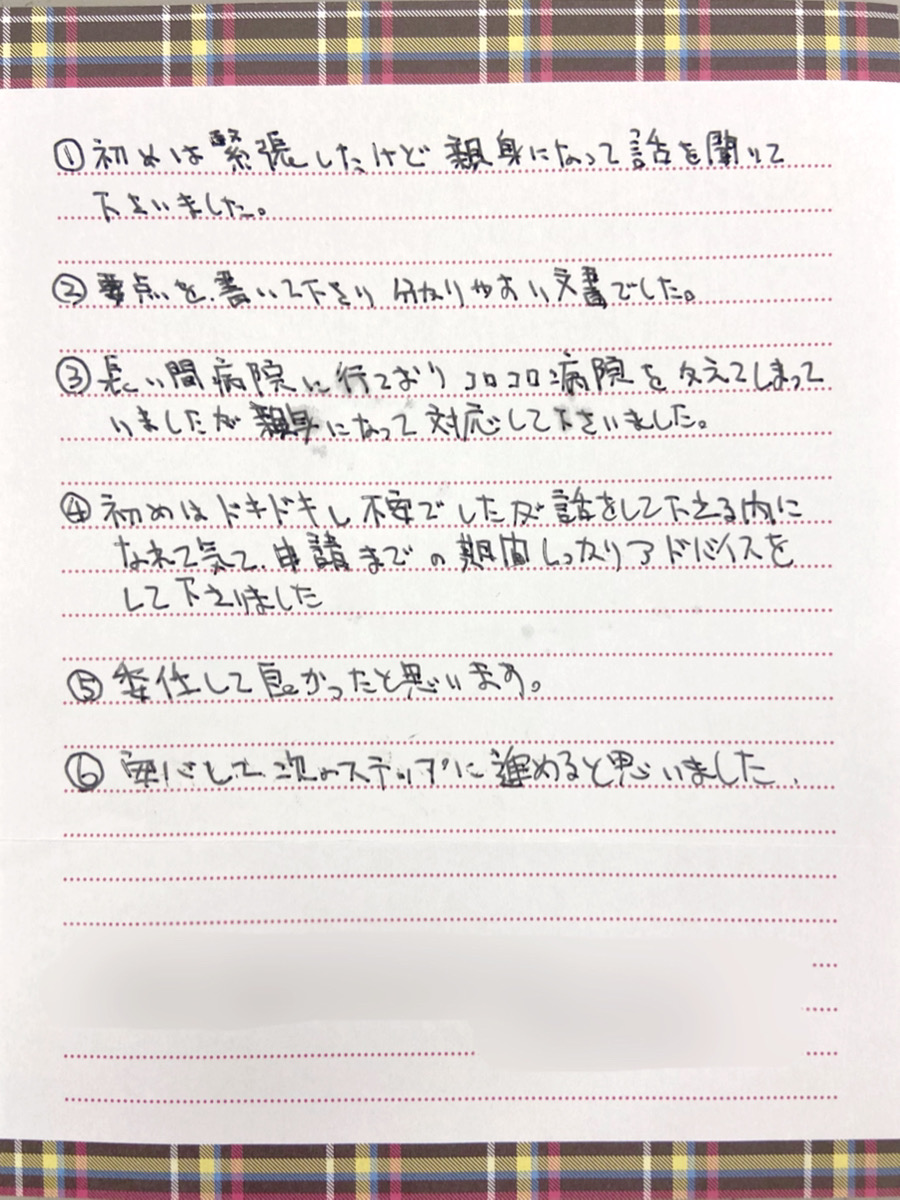 ①初めは緊張したけど親身になって話を聞いて
下さいました。
②要点を書いて下さり分かりやすい文書でした。
③長い間病院に行っておりコロコロ病院を変えてしまって
いましたが親身になって対応して下さいました。
④初めはドキドキし不安でしたが話をして下さる内に
なれて気て、申請までの期間しっかりアドバイスを
して下さいました
⑤委任して良かったと思います。
⑥安心して次のステップに進めると思いました.